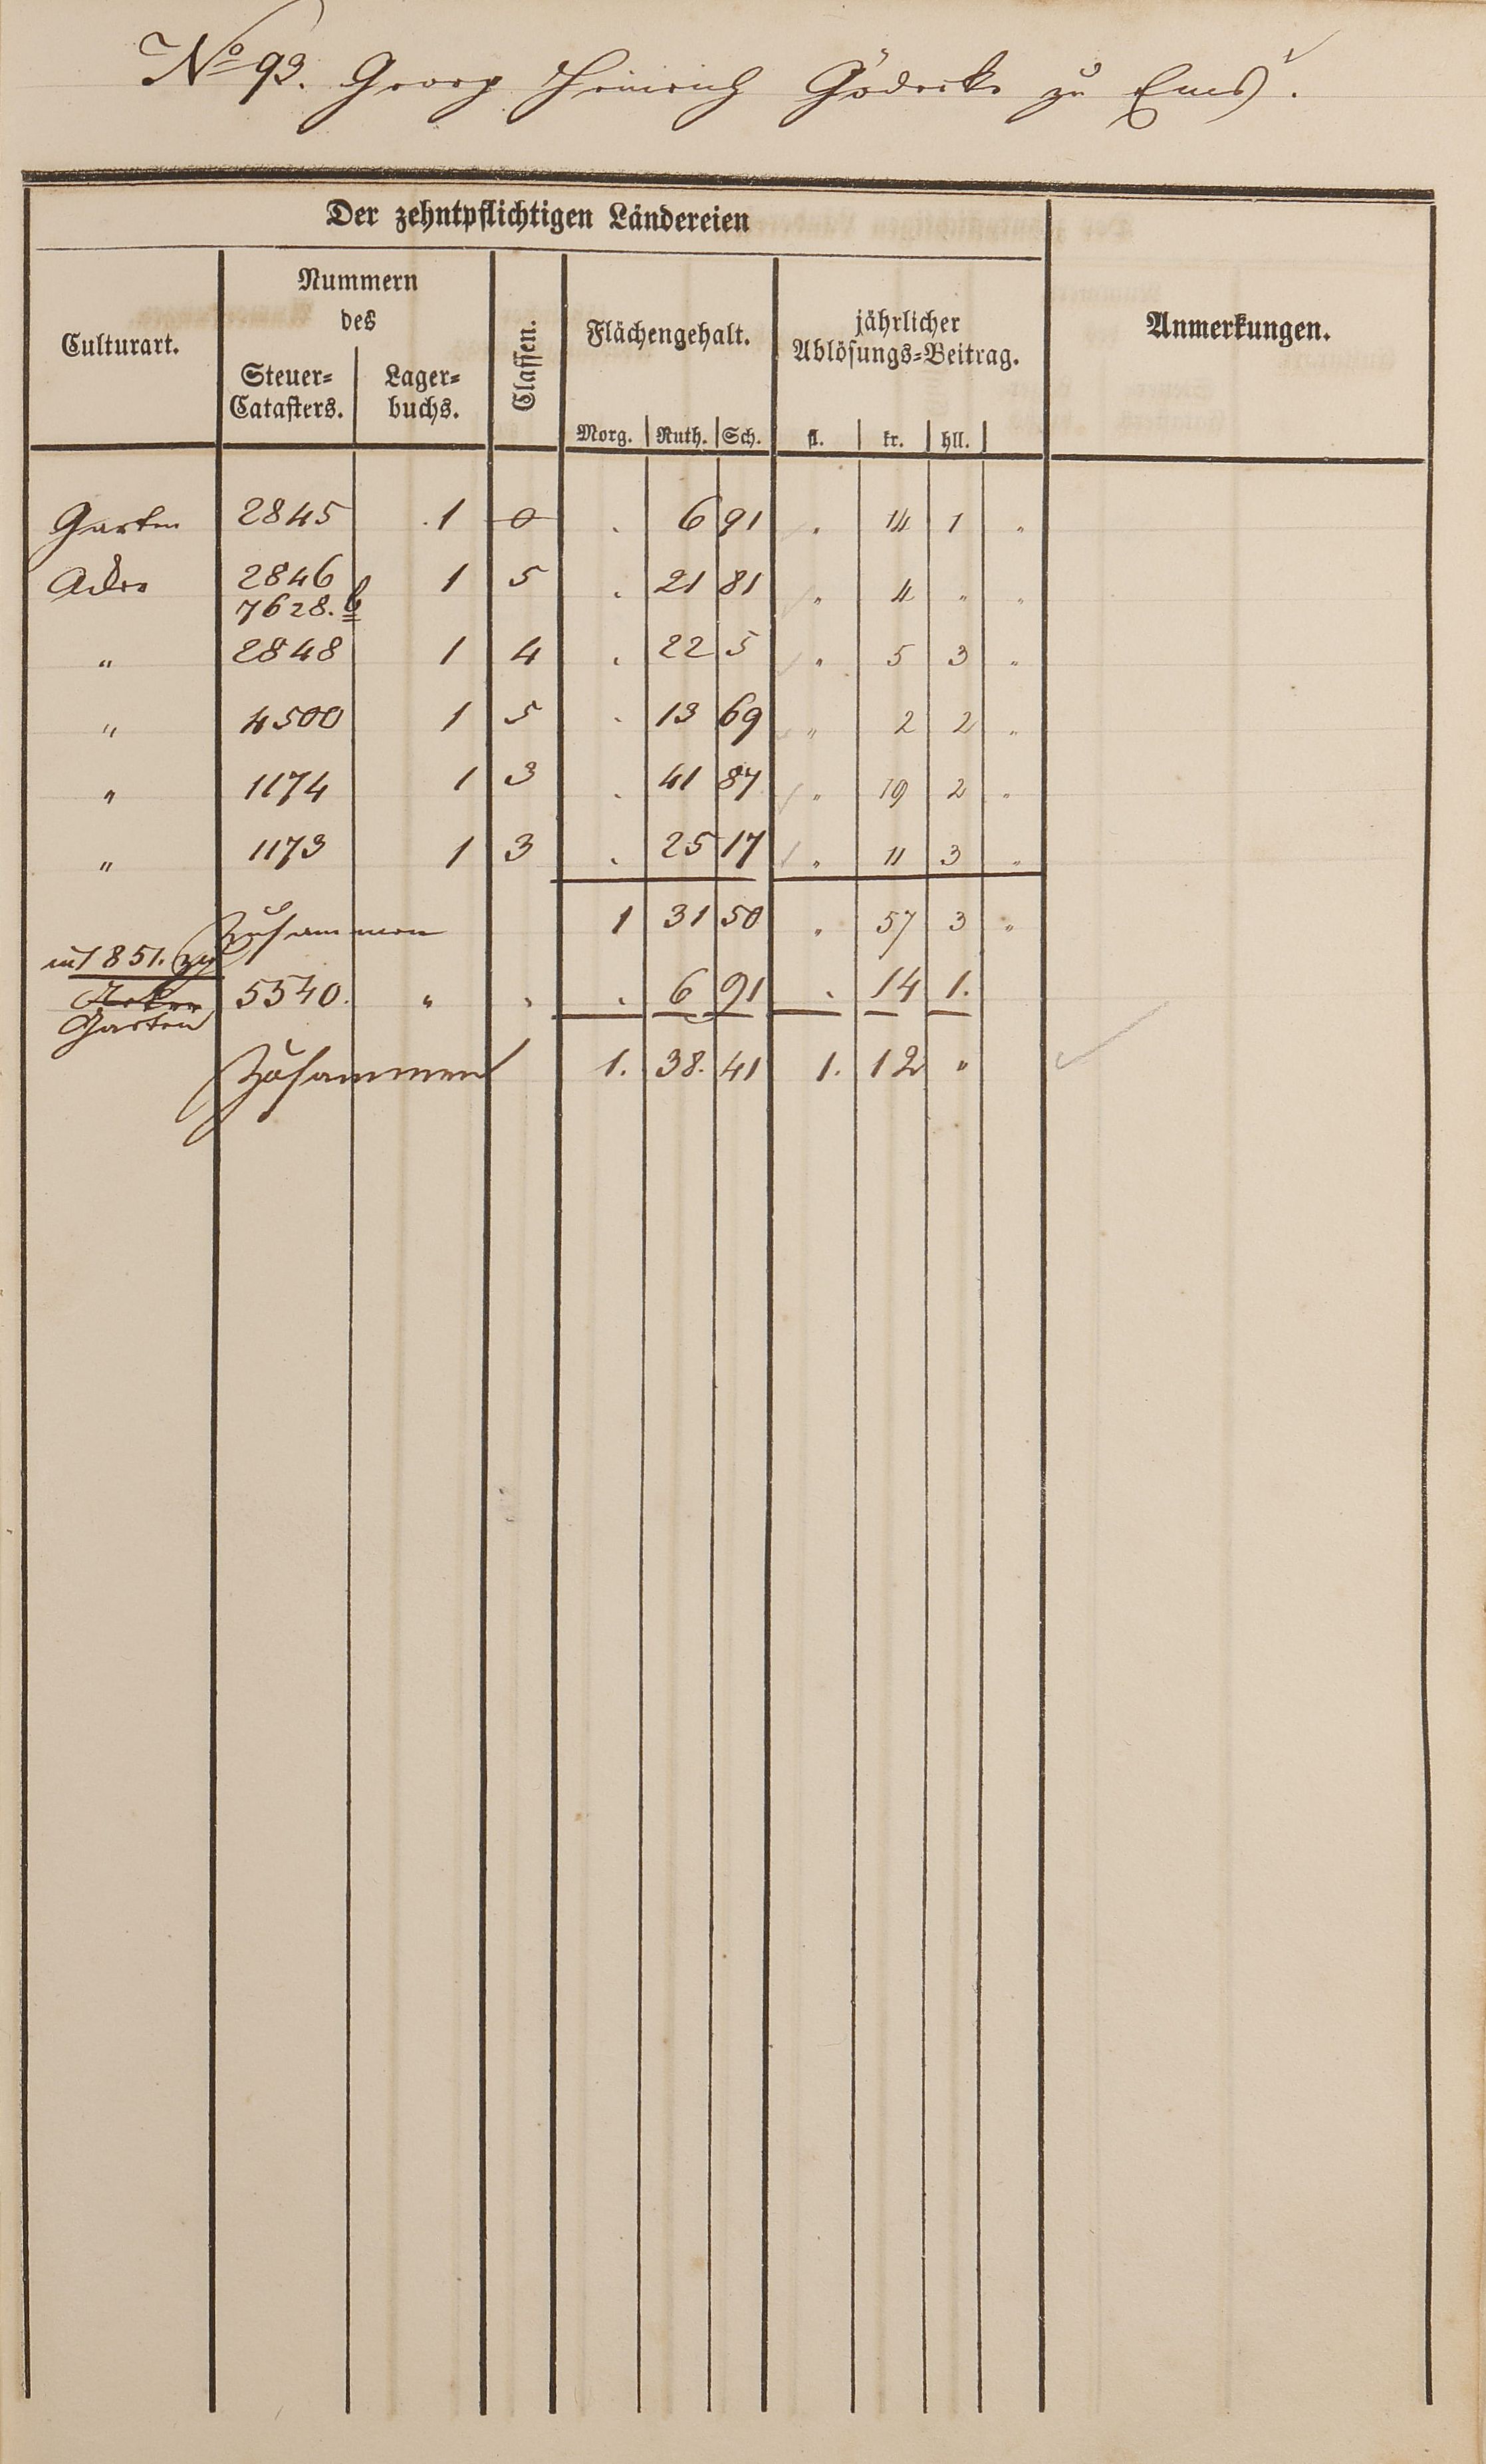 No 93. Georg Heinrich Gödecke zu Ems.
Der zehntpflichtigen Ländereien
Culturart.
Nummern
des
Steuer=
Catasters.
Lager=
buchs.
Classen.
Flächengehalt.
Morg. Ruth. Sch.
jährlicher
Ablösungs=Beitrag.
fl. kr. hll.
Anmerkungen.
Garten 2845 1 0 . 6 91 " 14 1 "
Acker 2846 1 5 . 21 81 " 4 " "
7628.b
" 2848 1 4 . 22 5 " 5 3 "
" 4500 1 5 . 13 69 " 2 2 "
" 1174 1 3 . 41 87 " 19 2 "
" 1173 1 3 . 25 17 " 11 3 "
Zusammen 1 31 50 " 57 3 "
in 1851. zu
Acker 5340. " " . 6 91 . 14 1.
Garten
Zusammen 1. 38. 41 1. 12 "